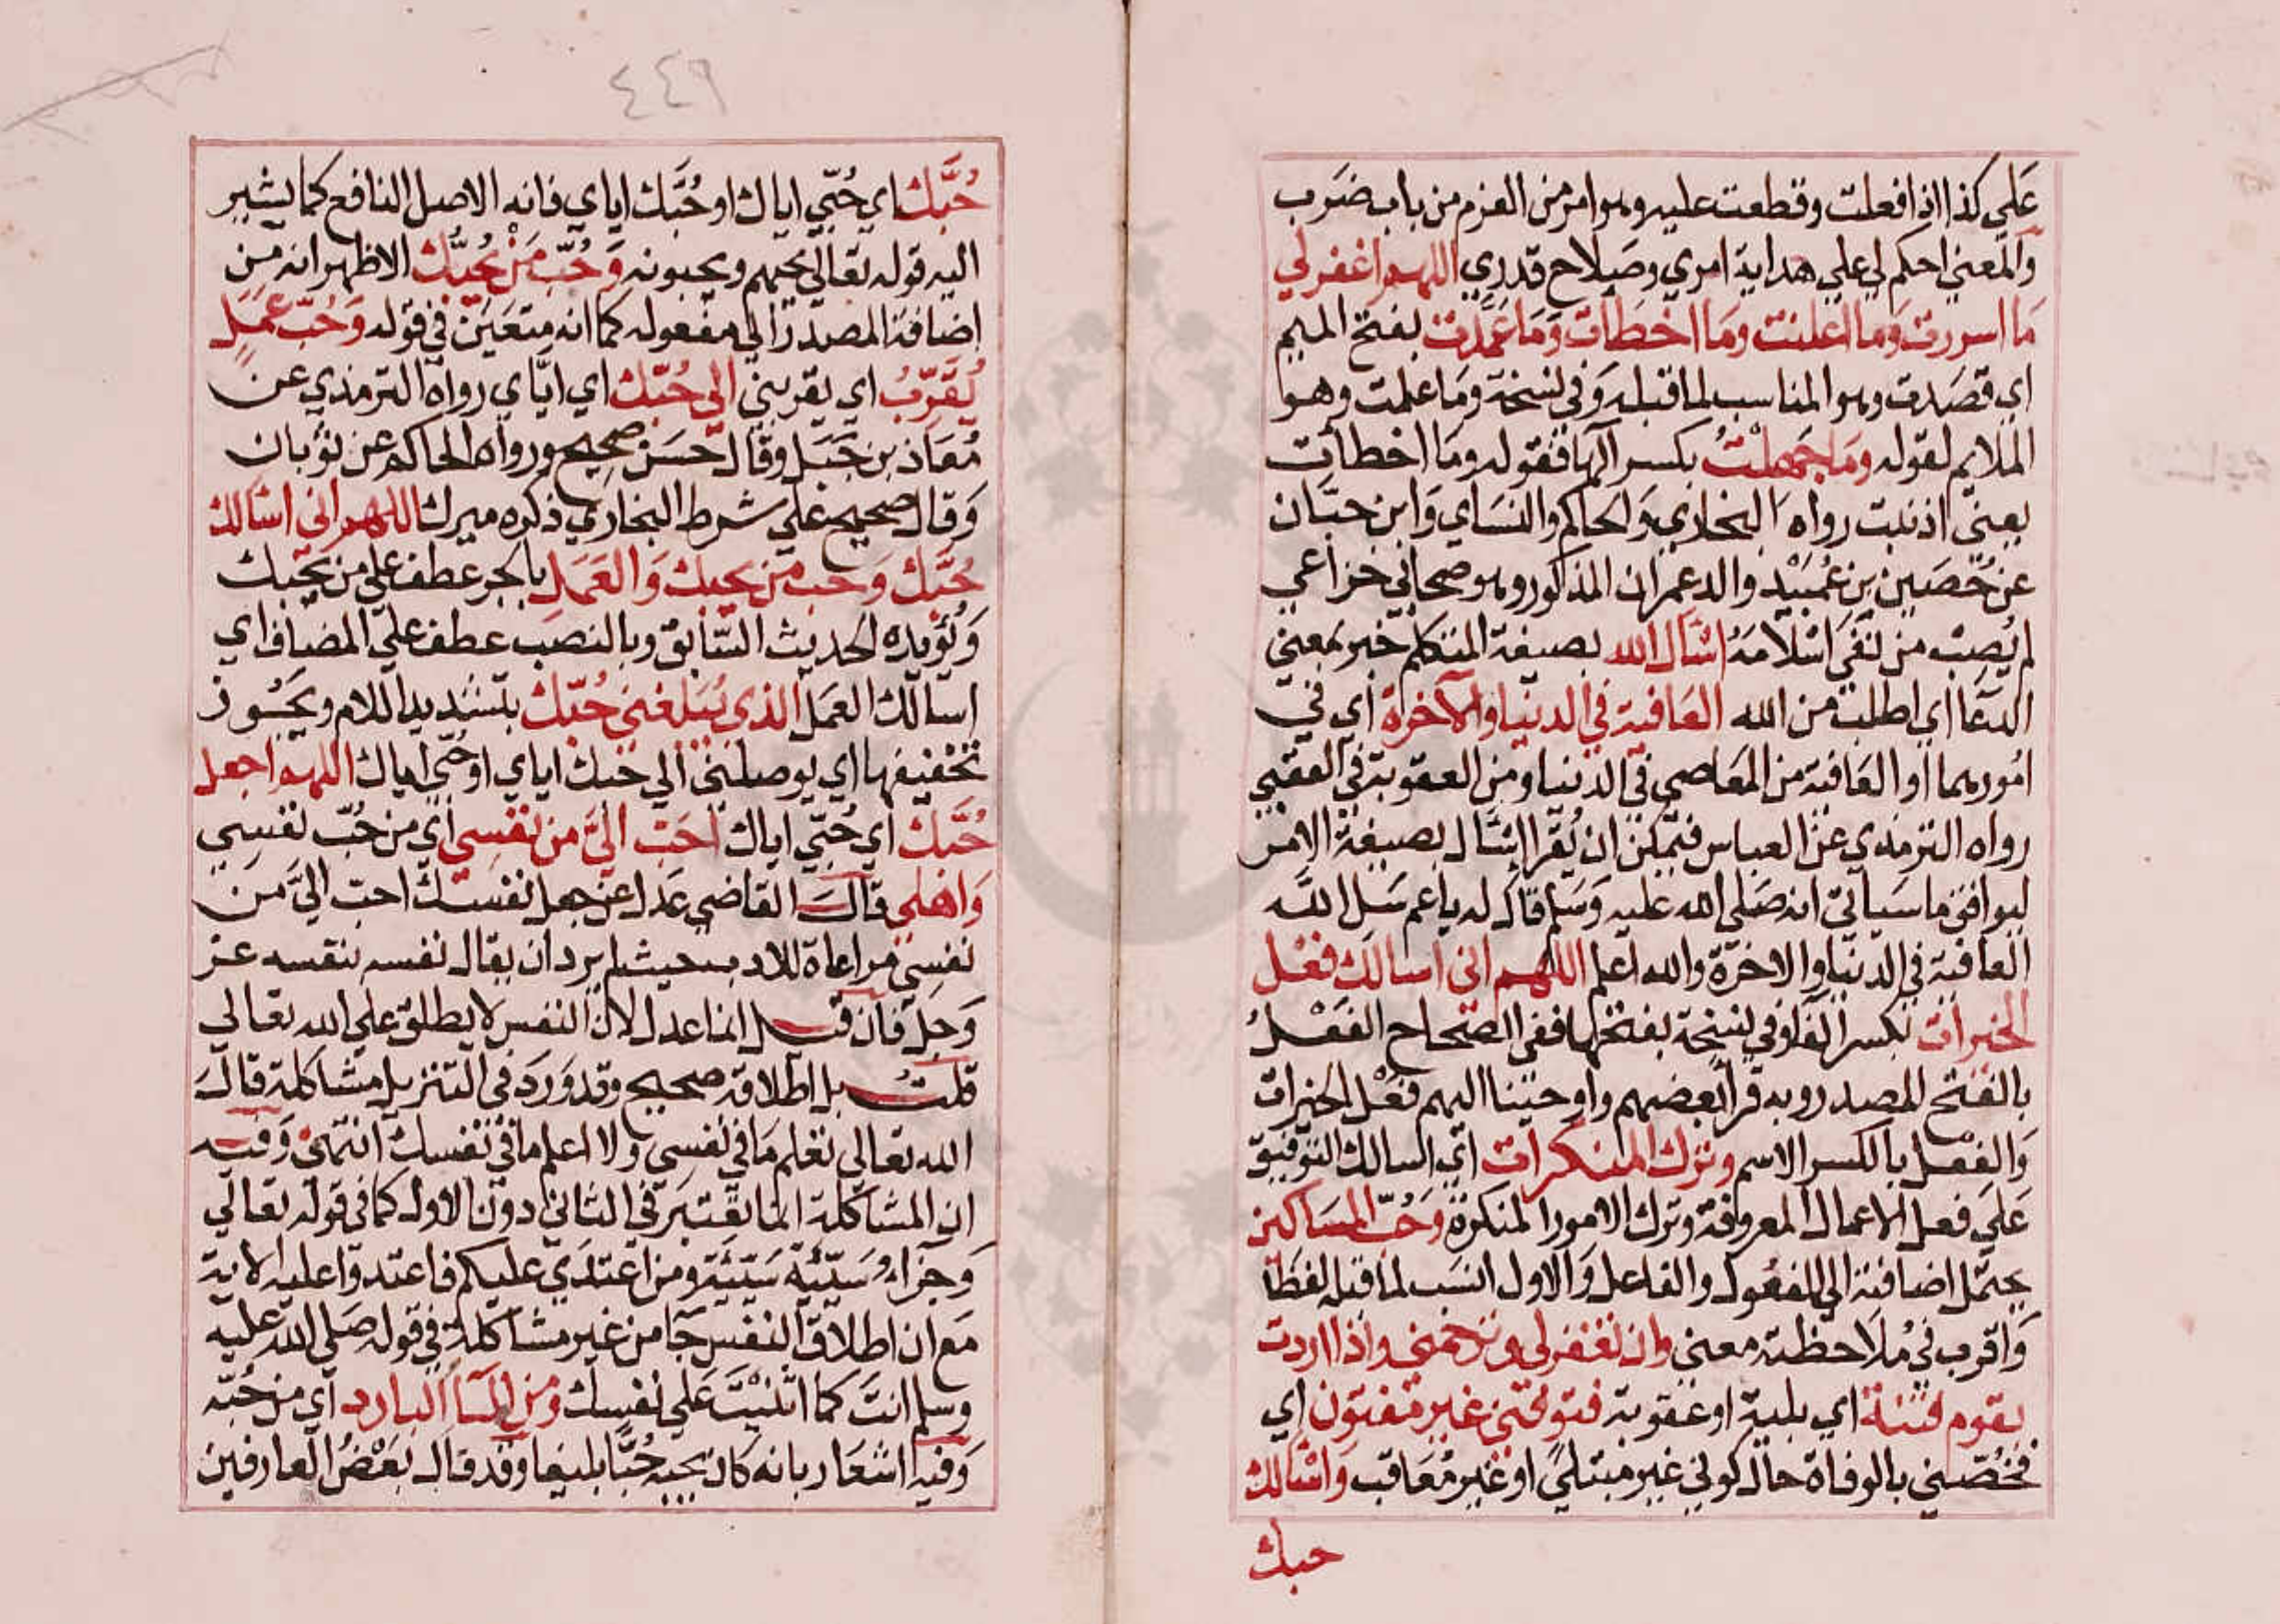 علي كذا اذا فعلت وقطعت عليه وهو امر من العزم من باب ضرب
والمعني احكم لي علي هداية امري وصلاح قدري اللهم اغفر لي
ما اسررت وما اعلنت وما اخطات وما عمدت بفتح الميم
اي قصدت وهو المناسب لما قبله وفي نسخة وما علمت وهو
الملايم لقوله وما جهلت بكسر الها فقوله وما اخطات
بمعني اذنبت رواه البخاري والحاكم والنساي وابن حبان
عن حصين بن عبيد والد عمران المذكور وهو صحابي خزاعي
لم يصب من نفي اسلامه اسال الله بصيغة المتكلم خبر بمعني
الدعا اي اطلب من الله العافية في الدنيا والآخرة اي في
امورهما او العافية من المعاصي في الدنيا ومن العقوبة في العقبي
رواه الترمذي عن العباس فيمكن ان يقرا اسال بصيغة الامر
ليوافق ما سياتي انه صلي الله عليه وسلم قال له يا عم سل الله
العافية في الدنيا والاخرة والله اعلم اللهم اني اسالك فعل
الخيرات بكسر الفاء وفي نسخة بفتحها ففي الصحاح الفعل
بالفتح المصدر وبه قرا بعضهم واوحينا اليهم فعل الخيرات
والفعل بالكسر الاسم وترك المنكرات اي اسالك التوفيق
علي فعل الاعمال المعروفة وترك الامور المنكرة وحب المساكين
يحتمل اضافته الي المفعول والفاعل والاول انسب لما قبله لفظا
واقرب في ملاحظته معني وان تغفر لي وترحمني واذا اردت
بقوم فتنة اي بلية او عقوبة فتوفني غير مفتون اي
فخصني بالوفاة حال كوني غير مبتلي او غير معاقب واسالك
حبك
٤٤٩
حبك اي حبي اياك او حبك اياي فانه الاصل النافع كما يشير
اليه قوله تعالي يحبهم ويحبونه وحب من يحبك الاظهر انه من
اضافة المصدر الي مفعوله كما انه متعين في قوله وحب عمل
يقرب اي يقربني الي حبك اي اياي رواه الترمذي عن
معاذ بن جبل وقال حسن صحيح ورواه الحاكم عن ثوبان
وقال صحيح علي شرط البخاري ذكره ميرك اللهم اني اسالك
حبك وحب من يحبك والعمل بالجر عطف علي من يحبك
ويؤيده الحديث السابق وبالنصب عطف علي المضاف اي
اسالك العمل الذي يبلغني حبك بتشديد اللام ويجوز
تخفيفها اي يوصلني الي حبك اياي او حبي اياك اللهم اجعل
حبك اي حبي اياك احب الي من نفسي اي من حب نفسي
واهلي قال القاضي عدل عن جعل نفسك احب الي من
نفسي مراعاة للادب حيث لم يرد ان يقال نفسه بنفسه عز
وجل فان قيل انما عدل لان النفس لا يطلق علي الله تعالي
قلت بل اطلاقه صحيح وقد ورد في التنزيل مشاكلة قال
الله تعالي تعلم ما في نفسي ولا اعلم ما في نفسك انتهي وفيه
ان المشاكلة انما تعتبر في الثاني دون الاول كما في قوله تعالي
وجزاء سيئة سيئة ومن اعتدي عليكم فاعتدوا عليه الاية
مع ان اطلاق النفس جا من غير مشاكلة في قوله صلي الله عليه
وسلم انت كما اثنيت علي نفسك ومن المآ البارد اي من حبه
وفيه اشعار بانه كان يحبه حبا بليغا وقد قال بعض العارفين